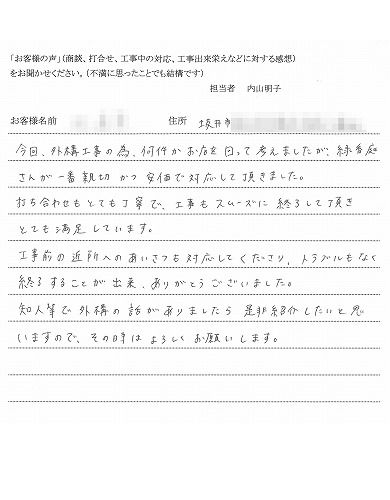 「お客様の声」(商談、打合せ、工事中の対応、工事出来栄えなどに対する感想)
をお聞かせください。(不満に思ったことでも結構です)
担当者 内山明子
お客様名前 住所 坂井市
今回、外構工事の為、何件かお店を回って考えましたが、緑香庭
さんが一番親切かつ安価で対応して頂きました。
打ち合わせもとても丁寧で、工事もスムーズに終了して頂き
とても満足しています。
工事前の近所へのあいさつも対応してくださり、トラブルもなく
終了することが出来、ありがとうございました。
知人等で外構の話がありましたら是非紹介したいと思
いますので、その時はよろしくお願いします。